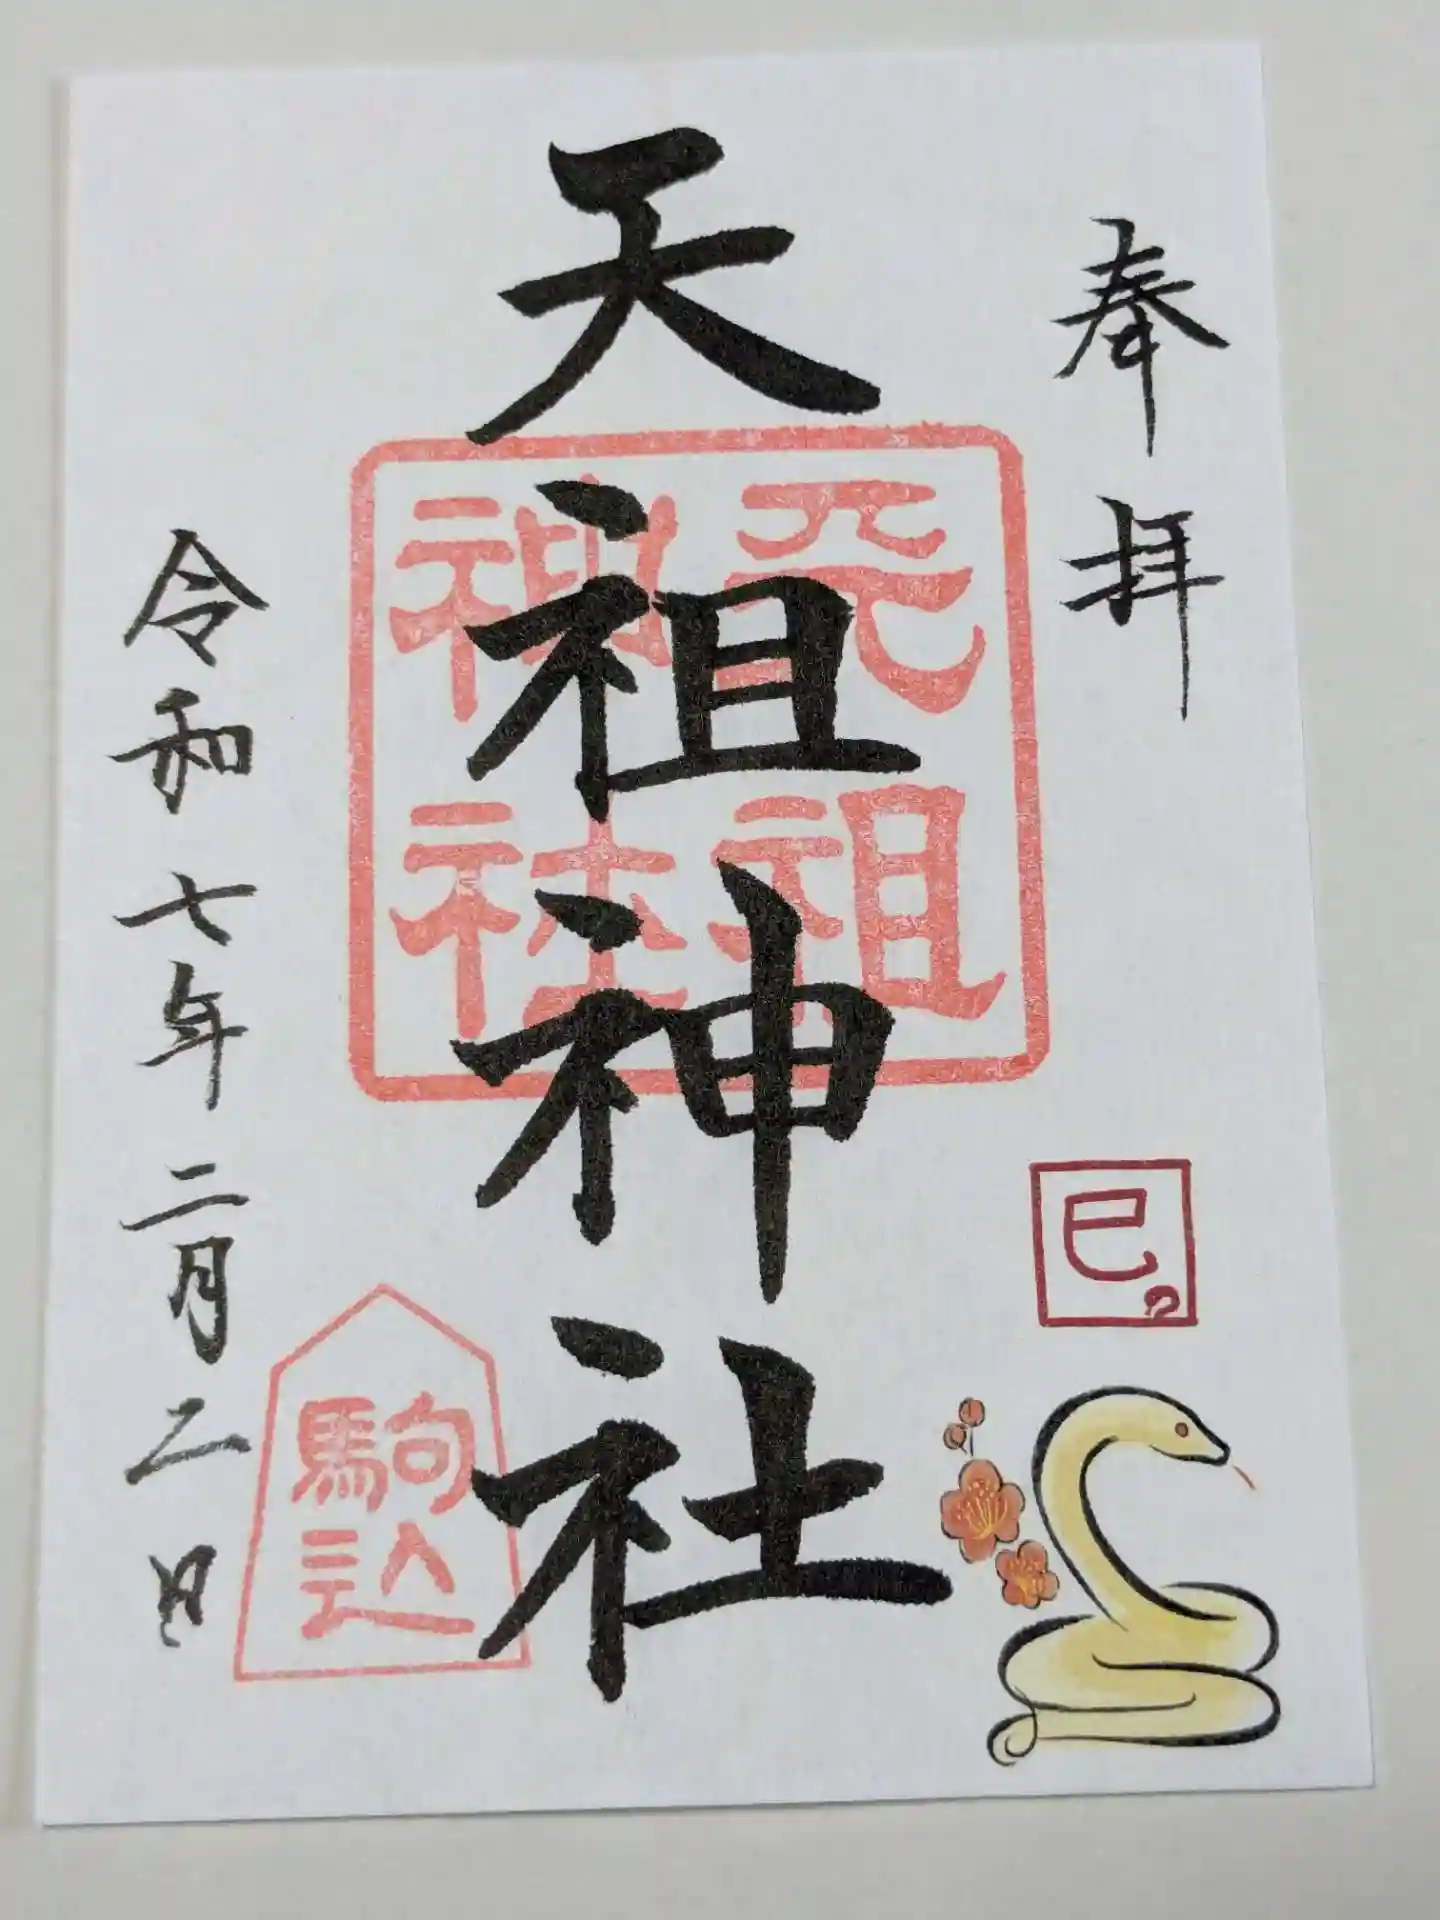 奉拝
巳
天祖神社
天祖神社
駒込
令和七年二月二日